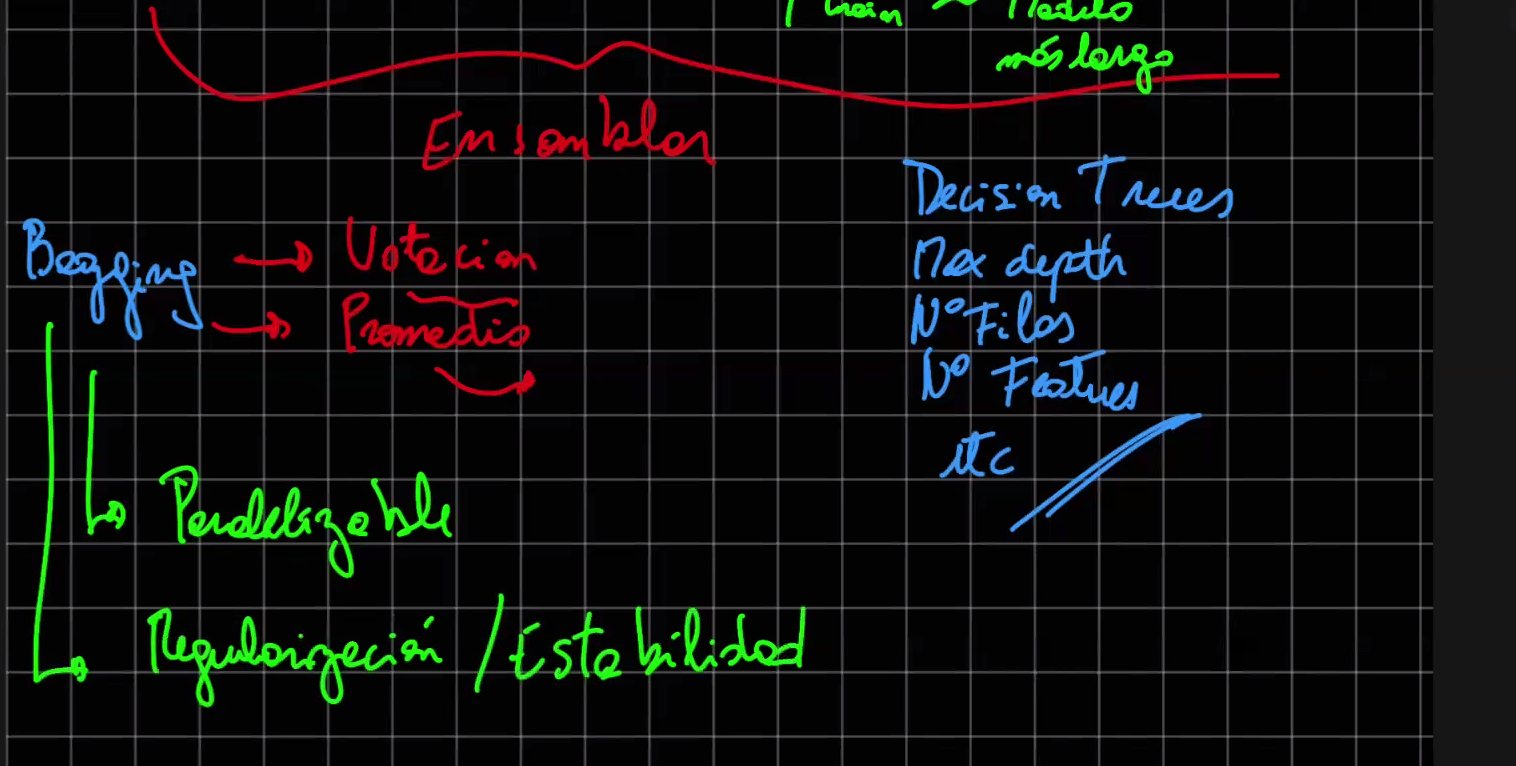 Train ~ Modelo
más largo
Ensambles
Bagging → Votacion
→ Promedio
Paralelizable
Regularización / Estabilidad
Decision Trees
Max depth
Nº Filas
Nº Featues
etc